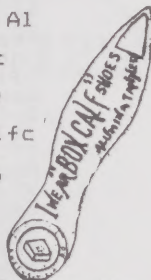 Al
fc
I WEAR "BOX CALF" SHOES